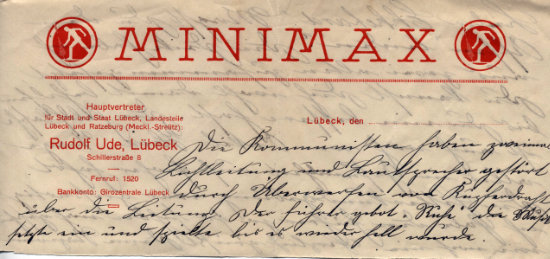 MINIMAX
Hauptvertreter
für Stadt und Staat Lübeck, Landesteile
Lübeck und Ratzeburg (Meckl.-Strelitz):
Rudolf Ude, Lübeck
Schillerstraße 8
Fernruf: 1520
Bankkonto: Girozentrale Lübeck
Lübeck, den
Die Kommunisten haben zweimal
Lichtleitung und Lautsprecher gestört
durch Überwerfen von Kupferdraht
über die Leitung. Der Führer gebot: Ruhe, die Musik
setzte ein und spielte bis es wieder hell wurde.